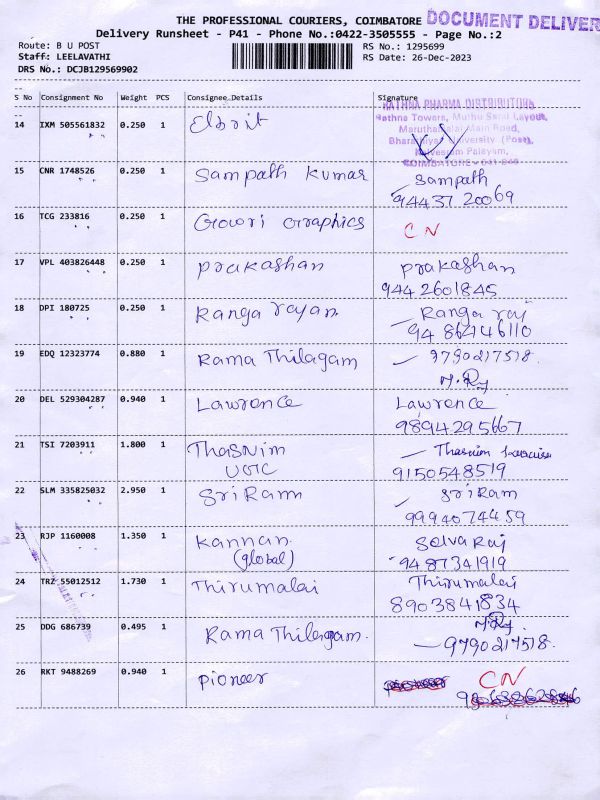 THE PROFESSIONAL COURIERS, COIMBATORE DOCUMENT DELIVER
Delivery Runsheet - P41 - Phone No.:0422-3505555 - Page No.:2
Route: B U POST
RS No.: 1295699
Staff: LEELAVATHI
RS Date: 26-Dec-2023
DRS No.: DCJB129569902
S No Consignment No Weight PCS Consignee Details Signature
RATHNA PHARMA DISTRIBUTORS
14 IXM 505561832 0.250 1 Elbrit
Rathna Towers, Muthu Layout,
Maruthamalai Main Road,
Bharathiyar University (Post),
Palayam,
COIMBATORE - 641 046
15 CNR 1748526 0.250 1 Sampath Kumar Sampath
94437 20069
16 TCG 233816 0.250 1 Gowri Graphics CN
17 VPL 403826448 0.250 1 Prakashan Prakashan
9442601845
18 DPI 180725 0.250 1 Ranga rajan Ranga raj
94 862146110
19 EDQ 12323774 0.880 1 Rama Thilagam 9790217518.
20 DEL 529304287 0.940 1 Lawrence Lawrence
9894295667
21 TSI 7203911 1.800 1 Thasnim Thasnim
UGC 9150548519
22 SLM 335825032 2.950 1 SriRam SriRam
9994074459
23 RJP 1160008 1.350 1 Kannan Selva Raj
(global) 9487341919
24 TRZ 55012512 1.730 1 Thirumalai Thirumalai
8903841834
25 DDG 686739 0.495 1 Rama Thilagam. 9790217518.
26 RKT 9488269 0.940 1 Pioneer CN